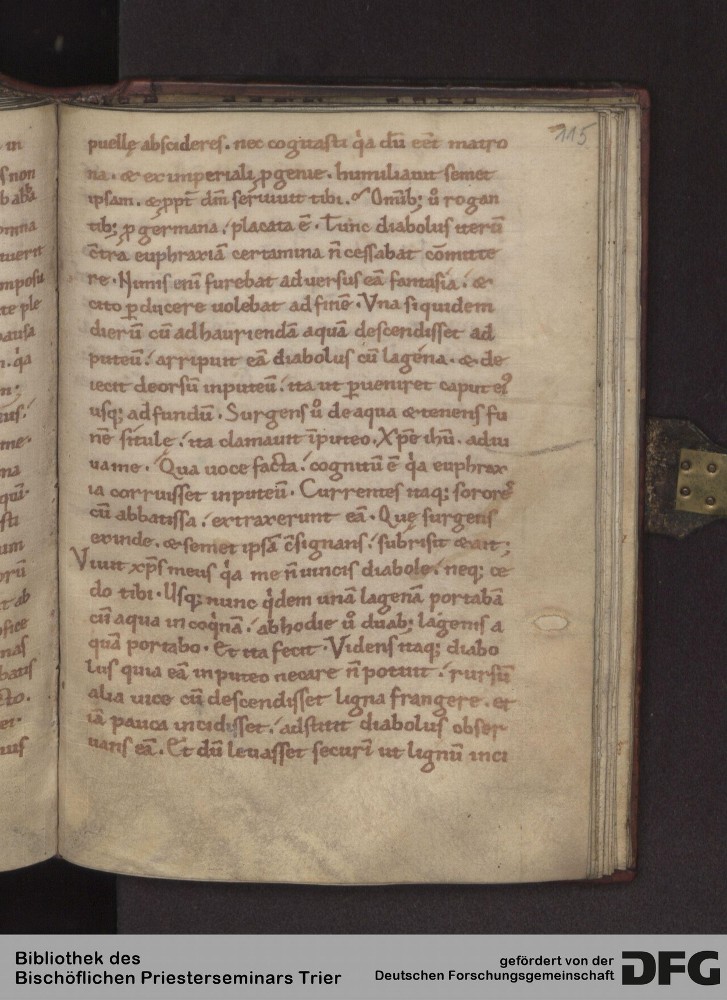 115
puellę abscideres. nec cogitasti q̇a dū eēt matro
na. & ex imperiali ꝓgenie. humiliauit semet
ipsam. & ꝓpt̄ dm̄ seruiuit tibi. Omīb; ů rogan
tib; ꝓ germana. placata ē. Tunc diabolus iterū
c̄tra euphraxiā certamina n̄ cessabat cōmitte
re. Nimis eni furebat aduersus eā fantasia. &
cito ꝑducere uolebat ad finē. Vna siquidem
dierū cū ad hauriendā aquā descendisset ad
puteū. arripuit eā diabolus cū lagena. & de
iecit deorsū in puteū. ita ut ꝑueniret caput ei᾽
usq; ad fundū. Surgens ů de aqua & tenens fu
nē situle. ita clamauit ī puteo. Xp̄e ihū. adiu
ua me. Qua uoce facta. cognitū ē q̇a euphrax
ia corruisset in puteū. Currentes itaq; sorores
cū abbatissa. extraxerunt eā. Quę surgens
exinde. & semet ipsā c̄signans. subrisit & ait;
Viuit xp̄s meus q̇a me n̄ uincis diabole. neq; ce
do tibi. Usq; nunc q̇dem unā lagenā portabā
cū aqua in coq̇nā. ab hodie ů duab; lagenis a
quā portabo. Et ita fecit. Videns itaq; diabo
lus quia eā in puteo necare n̄ potuit. rursū
alia uice cū descendisset ligna frangere. et
iā pauca incidisset. adstitit diabolus obser
uans eā. Et dū leuasset securī ut lignū inci
Bibliothek des
Bischöflichen Priesterseminars Trier
gefördert von der
Deutschen Forschungsgemeinschaft
DFG